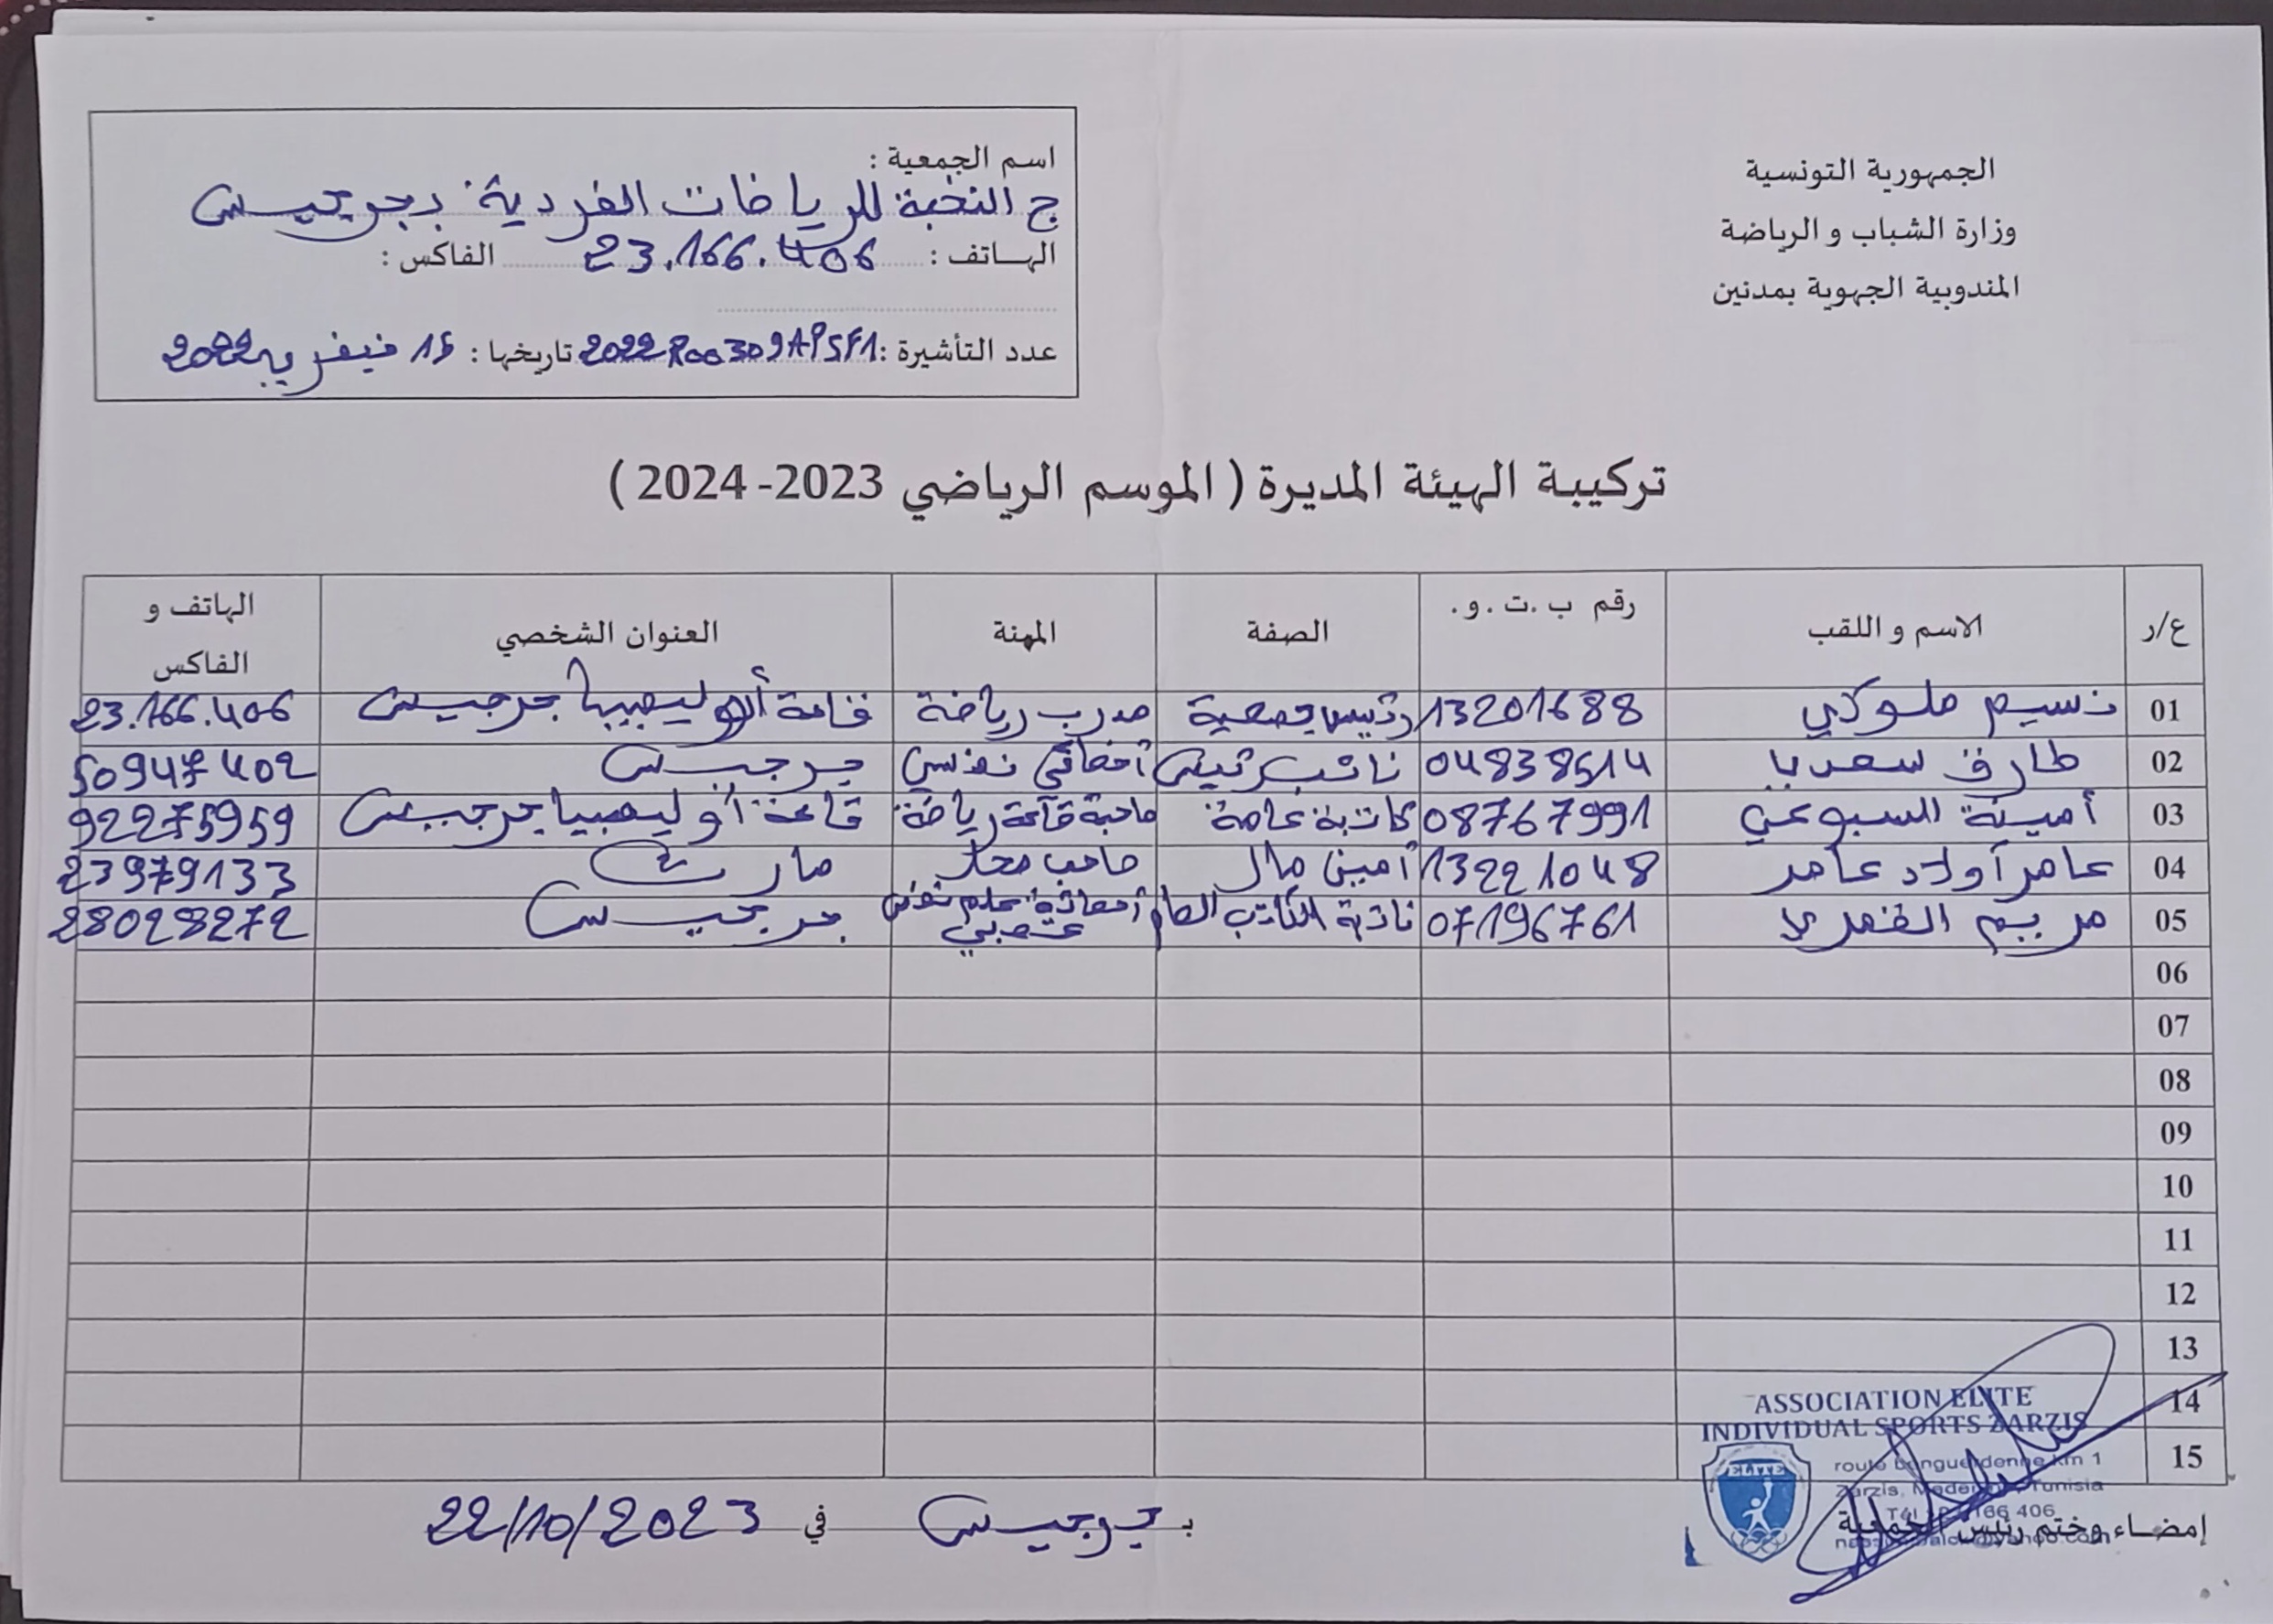 الجمهورية التونسية
وزارة الشباب و الرياضة
المندوبية الجهوية بمدنين
اسم الجمعية :
ج النخبة للرياضات الفردية بجرجيس
الهاتف : 23.166.406 الفاكس :
عدد التأشيرة : 2022R00309APSF1 تاريخها : 15 فيفري 2022
تركيبة الهيئة المديرة ( الموسم الرياضي 2023- 2024 )
ع/ر الاسم و اللقب رقم ب .ت .و. الصفة المهنة العنوان الشخصي الهاتف و الفاكس
01 نسيم ملوكي 13201688 رئيس جمعية مدرب رياضة قاعة أولیمبيا جرجيس 23.166.406
02 طارق سعديا 04838514 نائب رئيس أخصائي نفسي جرجيس 50947402
03 أمينة السبوعي 08767991 كاتبة عامة صاحبة قاعة رياضة قاعة أوليمبيا جرجيس 92275959
04 عامر أولاد عامر 13221048 أمين مال صاحب محل مارث 23979133
05 مريم 07196761 نائبة الكاتب العام أخصائية علم نفس عصبي جرجيس 28028272
06
07
08
09
10
11
12
13
14
15
ASSOCIATION ELITE
INDIVIDUAL SPORTS ZARZIS
route Benguerdenne km 1
Zarzis, Medenine, Tunisia
166 406
إمضاء وختم رئيس الجمعية
بـ جرجيس في 22/10/2023